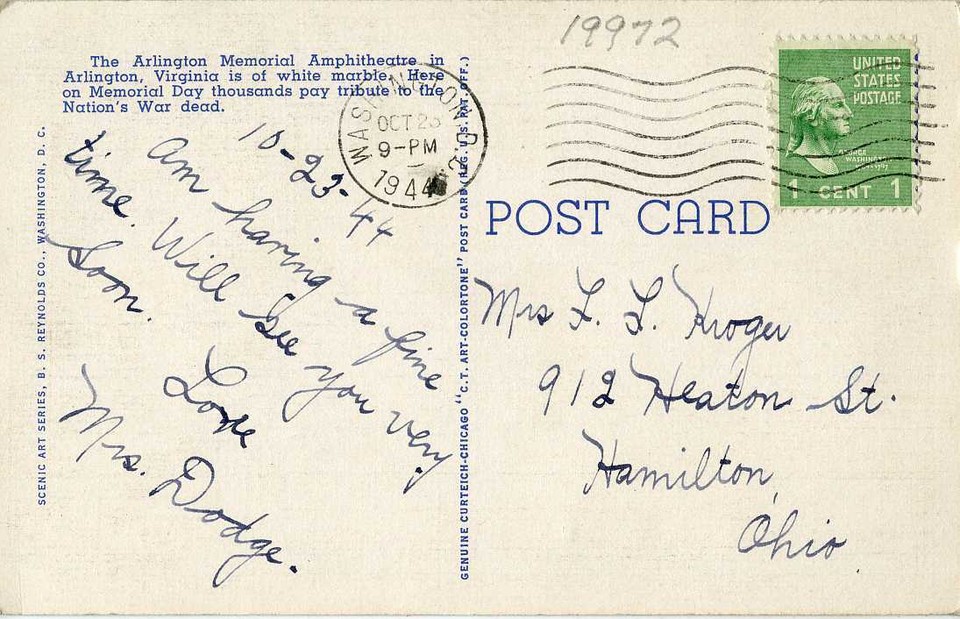 19972
The Arlington Memorial Amphitheatre in
Arlington, Virginia is of white marble. Here
on Memorial Day thousands pay tribute to the
Nation's War dead.
SCENIC ART SERIES, B. S. REYNOLDS CO., WASHINGTON, D. C.
10-23-44
Am having a fine
time. Will see you very
soon.
Love
Mrs. Dodge.
GENUINE CURTEICH-CHICAGO "C.T. ART-COLORTONE" POST CARD (REG. U.S. PAT. OFF.)
WASHINGTON, D.C.
OCT 23
9-PM
1944
UNITED
STATES
POSTAGE
1 CENT 1
POST CARD
Mrs L. L. Kroger
912 Heaton St.
Hamilton,
Ohio